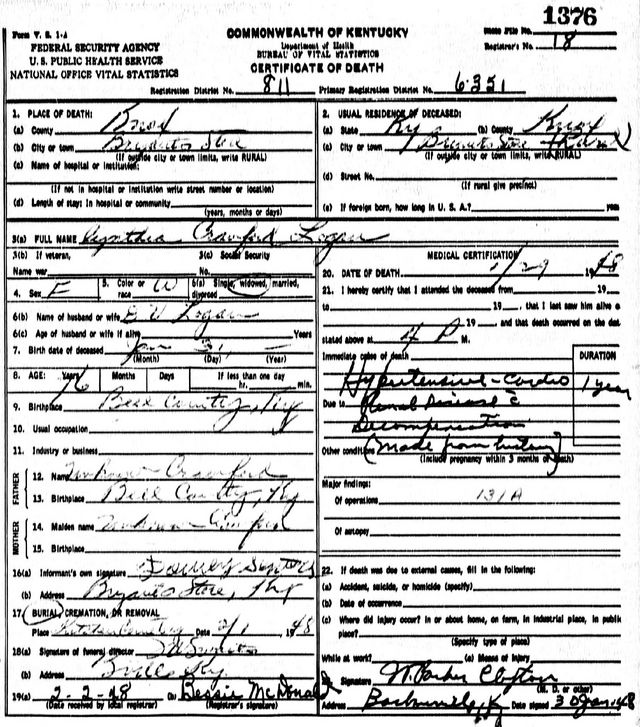 1376
Form V. S. 1-A
FEDERAL SECURITY AGENCY
U. S. PUBLIC HEALTH SERVICE
NATIONAL OFFICE VITAL STATISTICS
COMMONWEALTH OF KENTUCKY
Department of Health
BUREAU OF VITAL STATISTICS
CERTIFICATE OF DEATH
State File No.
Registrar's No. 18
Registration District No. 811 Primary Registration District No. 6351
1. PLACE OF DEATH:
(a) County Knox
(b) City or town Bryants Store
(If outside city or town limits, write RURAL)
(c) Name of hospital or institution:
(If not in hospital or institution write street number or location)
(d) Length of stay: In hospital or community
(years, months or days)
2. USUAL RESIDENCE OF DECEASED:
(a) State Ky (b) County Knox
(c) City or town Bryants Store (Rural)
(If outside city or town limits, write RURAL)
(d) Street No.
(If rural give precinct)
(e) If foreign born, how long in U. S. A.? years
3(a) FULL NAME Cynthia Crawford Logan
3(b) If veteran, Name war
3(c) Social Security No.
4. Sex F 5. Color or race W 6(a) Single, widowed, married, divorced
6(b) Name of husband or wife Logan
6(c) Age of husband or wife if alive Years
7. Birth date of deceased Jan 3,
(Month) (Day) (Year)
8. AGE: Years 76 Months Days If less than one day hr. min.
9. Birthplace Bell County, Ky
10. Usual occupation
11. Industry or business
FATHER
12. Name Crawford
13. Birthplace Bell County, Ky
MOTHER
14. Maiden name
15. Birthplace
16(a) Informant's own signature
(b) Address Bryants Store, Ky
17. BURIAL, CREMATION, OR REMOVAL
Place Cemetery Date 2/1 1948
18(a) Signature of funeral director
(b) Address Ky
19(a) 2-2-48 (b) Bessie McDonald
(Date received by local registrar) (Registrar's signature)
MEDICAL CERTIFICATION
20. DATE OF DEATH 1/29 1948
21. I hereby certify that I attended the deceased from 19
to 19 , that I last saw him alive o
19 , and that death occurred on the dat
stated above at 4 P M.
Immediate cause of death
DURATION
Hypertensive-Cardio 1 year
Due to Renal Disease c
Decompensation
Other conditions (Made from history)
(Include pregnancy within 3 months of death)
Major findings:
Of operations 131A
Of autopsy
22. If death was due to external causes, fill in the following:
(a) Accident, suicide, or homicide (specify)
(b) Date of occurrence
(c) Where did injury occur? In or about home, on farm, in industrial place, in public
place?
(Specify type of place)
While at work? (e) Means of injury
Signature W. Parker Clifton
(M. D. or other)
Address Barbourville, Ky Date signed 30 Jan 48